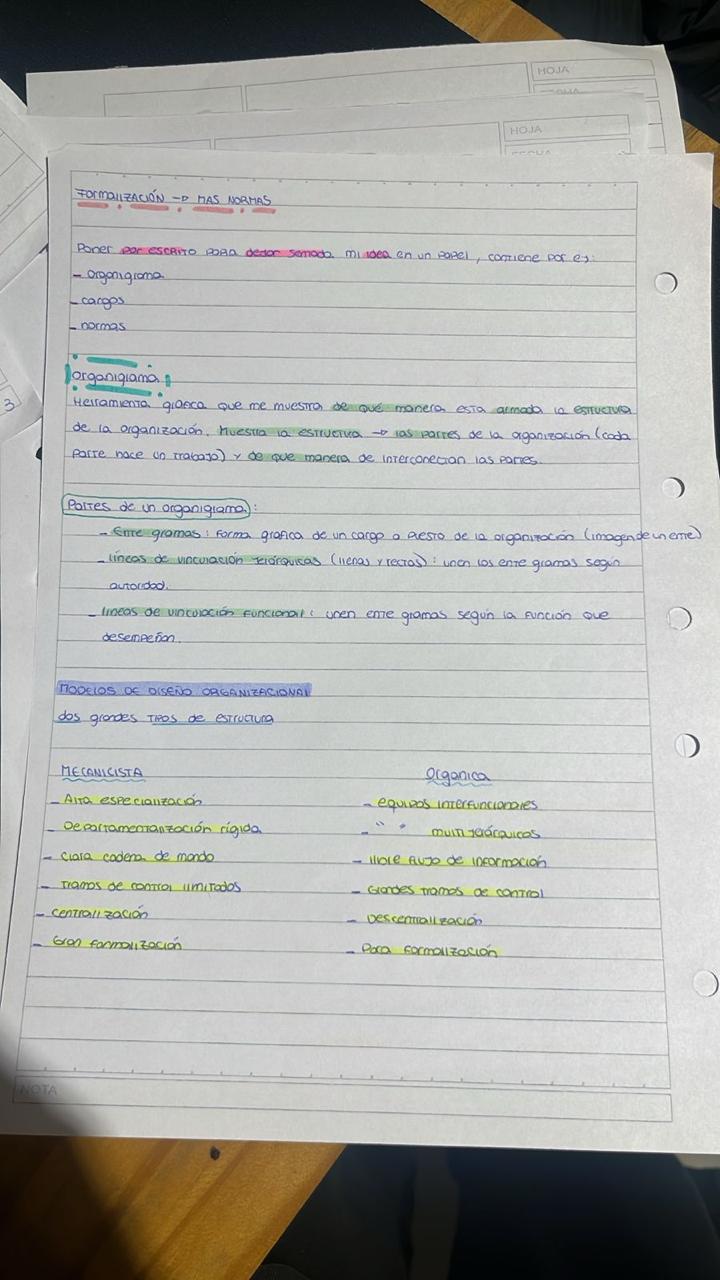 HOJA
HOJA
FORMALIZACIÓN → MAS NORMAS
Poner por escrito para dejar semada mi idea en un papel, contiene por ej:
- organigrama
- cargos
- normas
organigrama
Herramienta grafica que me muestra de qué manera esta armada la estructura
de la organización. Muestra la estructura → las partes de la organización (cada
parte hace un trabajo) y de que manera de interconectan las partes.
Partes de un organigrama:
- Ente gramas: forma grafica de un cargo o puesto de la organización (imagen de un ente)
- líneas de vinculación jerárquicas (llenas y rectas): unen los ente gramas según
autoridad.
- lineas de vinculación funcional: unen ente gramas según la función que
desempeñan.
MODELOS DE DISEÑO ORGANIZACIONAL
dos grandes tipos de estructura
MECANICISTA
- Alta especialización
- Departamentanzación rígida
- Clara cadena de mando
- Tramos de control limitados
- centralización
- Gran formalización
Organica
- equipos interfuncionales
- " " multi jerárquicos
- libre flujo de información
- Grandes tramos de control
- Descentralización
- Poca formalización
NOTA
3